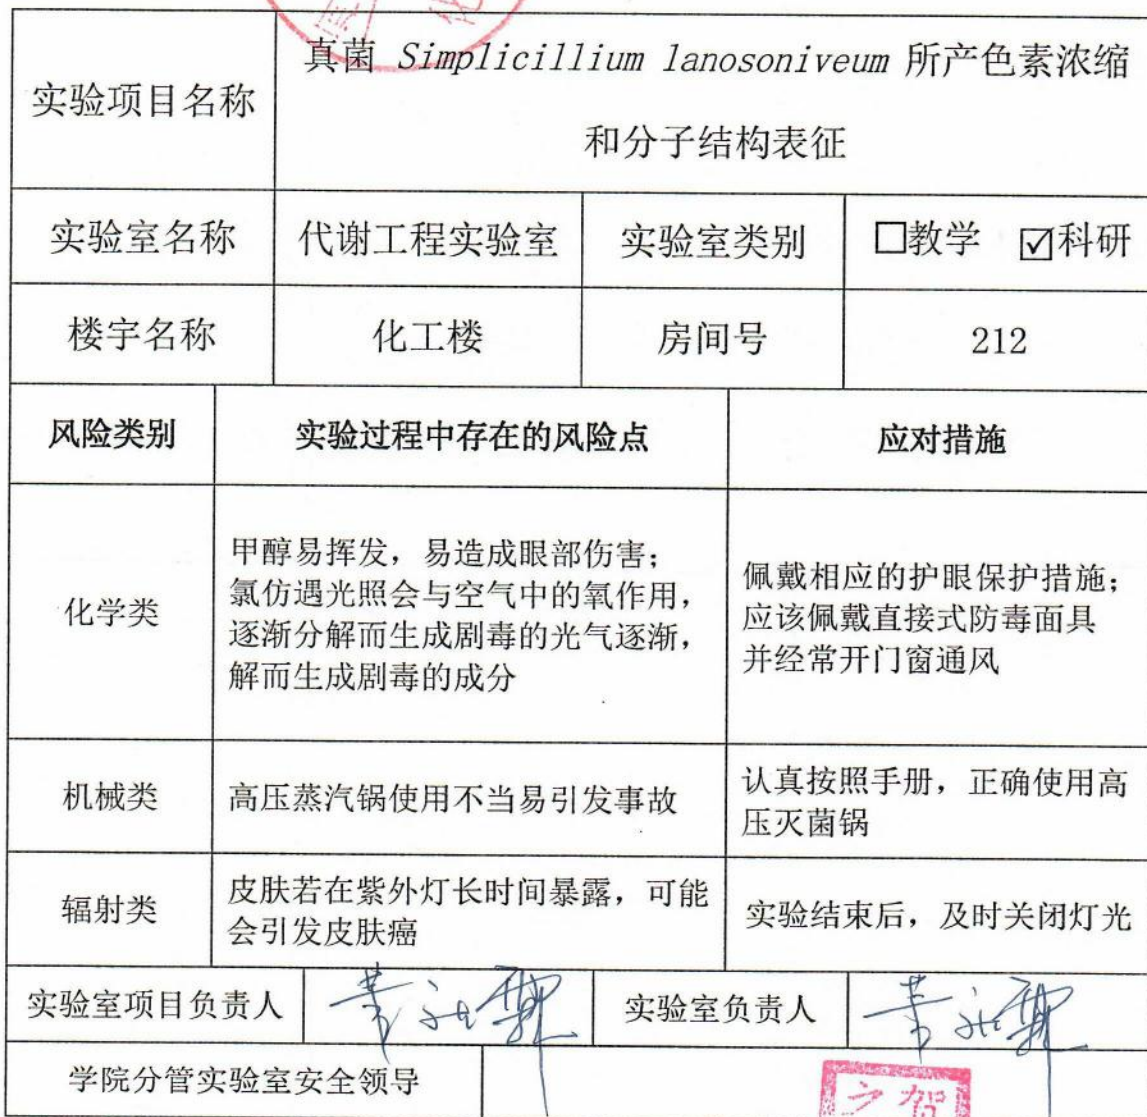 真菌 Simplicillium lanosoniveum 所产色素浓缩
实验项目名称
和分子结构表征
实验室名称 代谢工程实验室 实验室类别 □教学 ☑科研
楼宇名称 化工楼 房间号 212
风险类别 实验过程中存在的风险点 应对措施
化学类
甲醇易挥发，易造成眼部伤害；
氯仿遇光照会与空气中的氧作用，
逐渐分解而生成剧毒的光气逐渐，
解而生成剧毒的成分
佩戴相应的护眼保护措施；
应该佩戴直接式防毒面具
并经常开门窗通风
机械类
高压蒸汽锅使用不当易引发事故
认真按照手册，正确使用高
压灭菌锅
辐射类
皮肤若在紫外灯长时间暴露，可能
会引发皮肤癌
实验结束后，及时关闭灯光
实验室项目负责人 实验室负责人
学院分管实验室安全领导